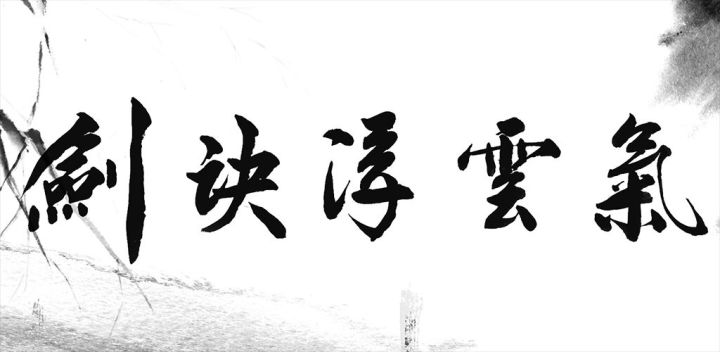 劍訣浮雲氣